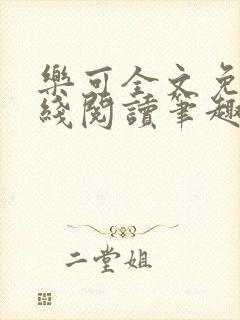 樂可全文免
綫閱讀筆趣
二堂姐